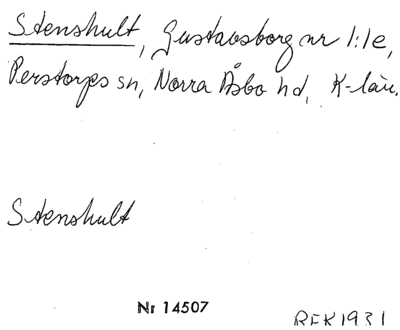 Stenshult, Gustavsborg nr 1:1e,
Perstorps sn, Norra Åsbo hd, K-län.
Stenshult
Nr 14507
REK1931